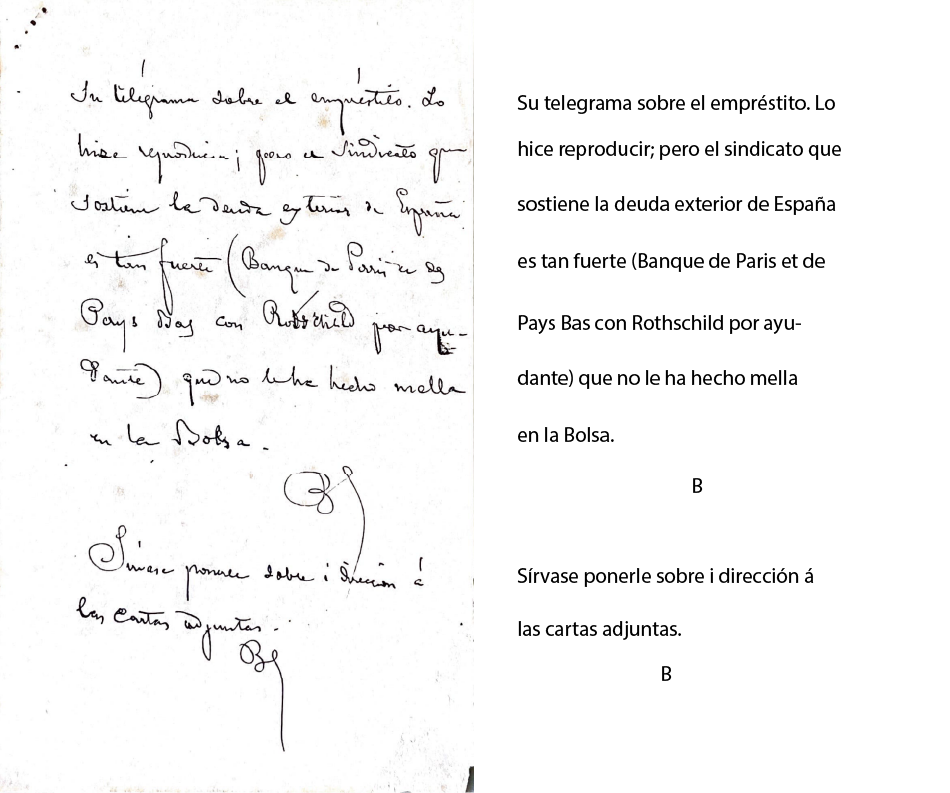 Su telegrama sobre el empréstito. Lo
hice reproducir; pero el sindicato que
sostiene la deuda exterior de España
es tan fuerte (Banque de Paris et des
Pays Bas con Rothschild por ayu-
dante) que no le ha hecho mella
en la Bolsa.
B
Sírvase ponerle sobre i dirección á
las cartas adjuntas.
B
Su telegrama sobre el empréstito. Lo
hice reproducir; pero el sindicato que
sostiene la deuda exterior de España
es tan fuerte (Banque de Paris et de
Pays Bas con Rothschild por ayu-
dante) que no le ha hecho mella
en la Bolsa.
B
Sírvase ponerle sobre i dirección á
las cartas adjuntas.
B